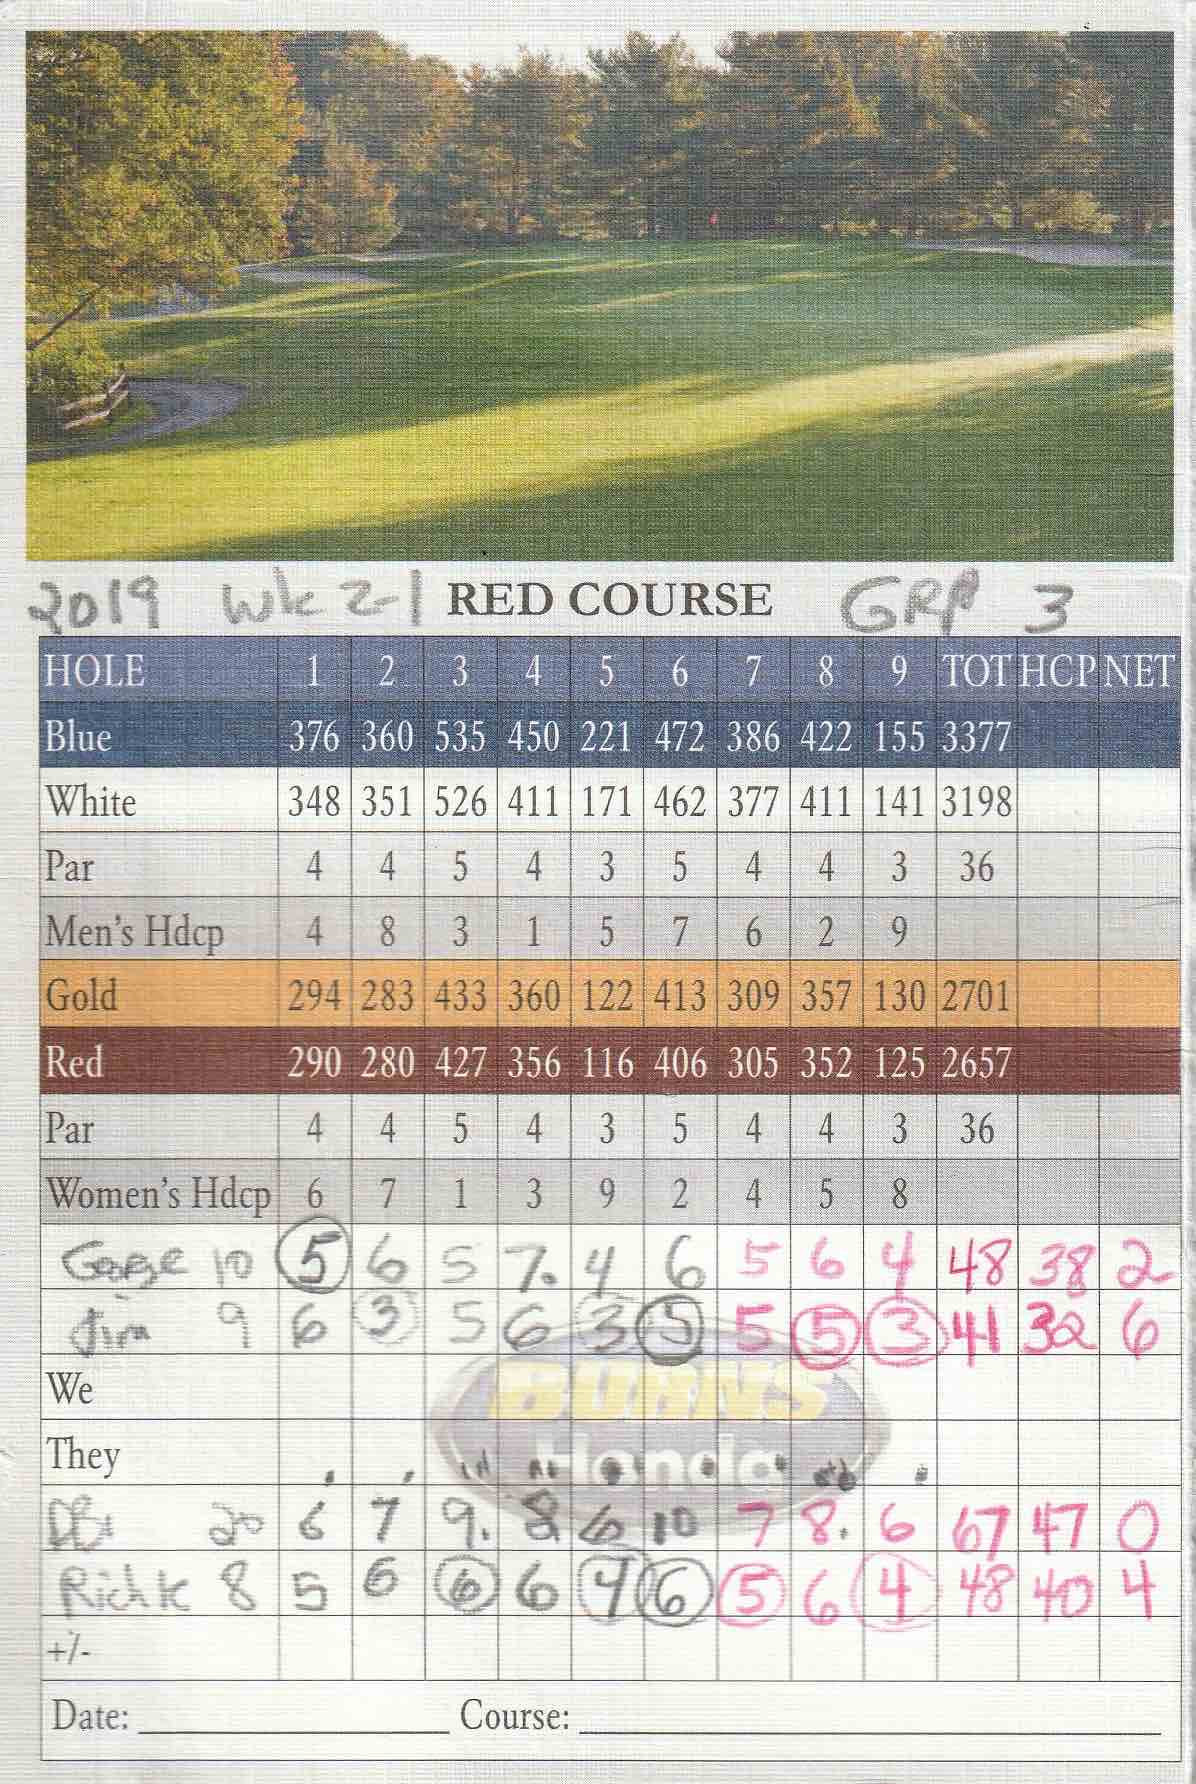 2019 Wk 2-1 RED COURSE GRP 3
HOLE 1 2 3 4 5 6 7 8 9 TOT HCP NET
Blue 376 360 535 450 221 472 386 422 155 3377
White 348 351 526 411 171 462 377 411 141 3198
Par 4 4 5 4 3 5 4 4 3 36
Men's Hdcp 4 8 3 1 5 7 6 2 9
Gold 294 283 433 360 122 413 309 357 130 2701
Red 290 280 427 356 116 406 305 352 125 2657
Par 4 4 5 4 3 5 4 4 3 36
Women's Hdcp 6 7 1 3 9 2 4 5 8
10 5 6 5 7. 4 6 5 6 4 48 38 2
Jim 9 6 3 5 6 3 5 5 5 3 41 32 6
We
BURNS
They
Honda
20 6 7 9. 8. 6 10 7 8. 6 67 47 0
Rich K 8 5 6 6 6 4 6 5 6 4 48 40 4
+/-
Date: Course: